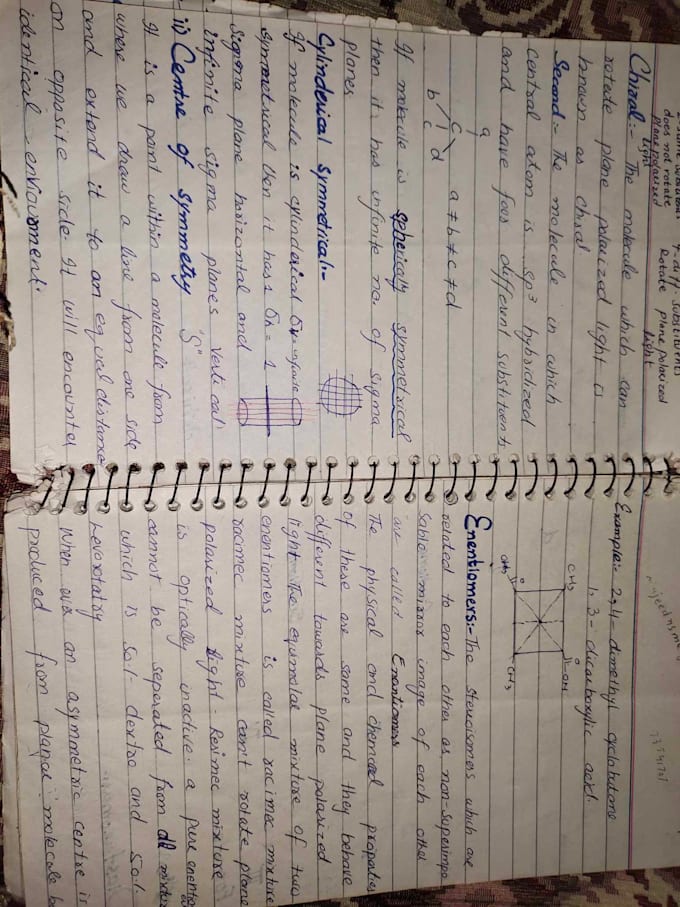 does not rotate
plane polarized
light
4-diff Substituents
Rotate plane polarized
light
Chiral:- The molecule which can
rotate plane polarized light is
known as chiral
Second:- The molecule in which
central atom is sp³ hybridized
and have four different substituents
a
C
b c d
a ≠ b ≠ c ≠ d
If molecule is spherically symmetrical
then it has infinite no. of sigma
planes
Cylinderical Symmetrical:-
If molecule is cylinderical
symmetrical then it has 1 σh = 1
Sigma plane horizontal and
infinite sigma planes vertical
ii) Centre of Symmetry "S"
It is a point within a molecule from
where we draw a line from one side
and extend it to an equal distance
on opposite side. It will encounter
identical enviourment.
Example:- 2,4 dimethyl cyclobutane
1,3-dicarboxylic acid.
CH3
CH3
CH3
Enentiomers:- The stereoismers which are
related to each other as non-superimpo
sable mirror image of each other
are called Enantiomers
The physical and chemical properties
of these are same and they behave
different towards plane polarized
light. The equimolar mixture of two
enentiomers is called racimec mixture
racimec mixture can't rotate plane
polarized light. Resimec mixture
is optically inactive. a pure enentio
cannot be seperated from dl mixture
which is 50% dextro and 50%
Levorotatry
When ever an asymmetric centre is
produced from planar molecule b